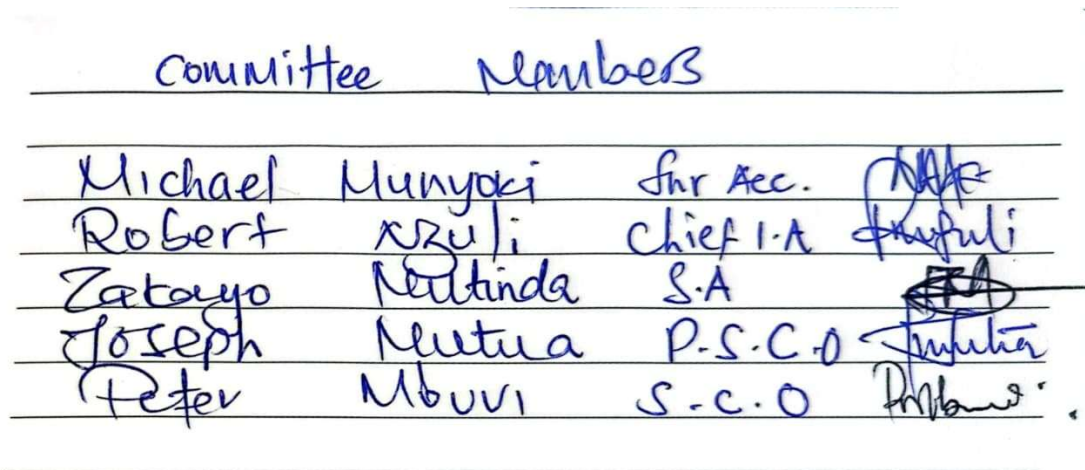 Committee Members
Michael Munyoki Snr Acc.
Robert Nzuli Chief I.A
Zakayo Mutinda S.A
Joseph Mutua P.S.C.O
Peter Mbuvi S.C.O